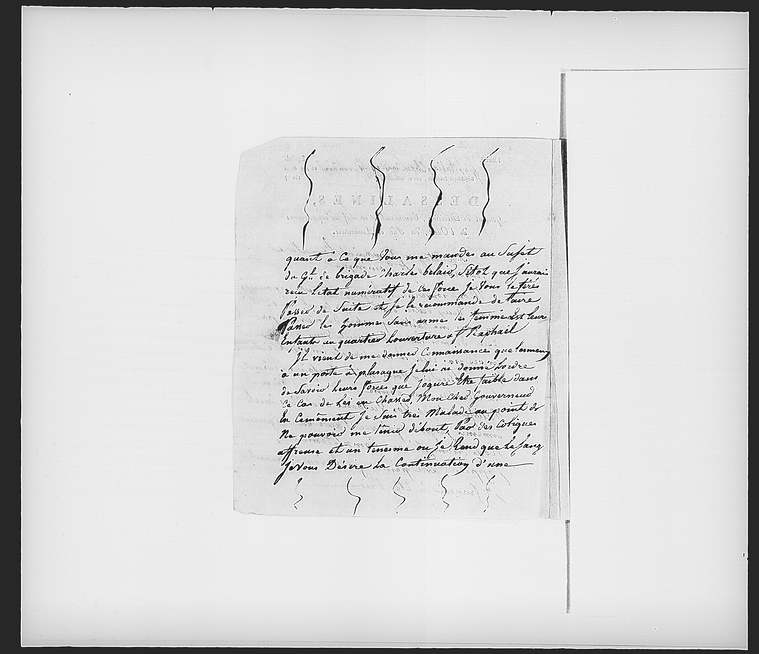 quant à Ce que Vous me mandes au Sujet
du Gl. de brigade Charle belair, Sitot que J'aurai
recu Létat numératif de Ces force Je Vous le ferés
Passer de Suite et Je le recommande de faire
Passer les homme Sans arme les femme et leur
Enfants au quartier Louverture a St Raphaël
Il vient de me donner Connaissance que l'ennemy
a un poste à plasaque Je lui ai donné Lordre
de Savoir Leurs forces que Jogure Etre faible dans
Ce Cas de Les en Chasser, Mon Cher Gouverneur
En Cemoment Je Suis tres Malade au point de
Ne pouvoir me tenir débout, Par des Coliques
affreuse et un tenesme ou Je Rend que du Sang
Je Vous Désire La Continuation d'une